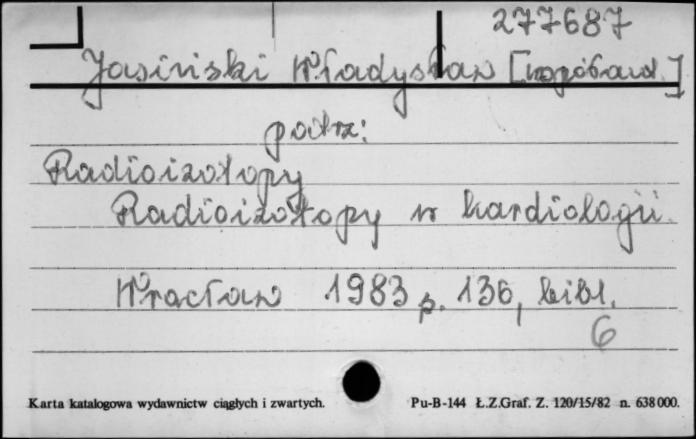 277687
Jasiński Władysław [współaut.]
patrz:
Radioizotopy
Radioizotopy w kardiologii.
Wrocław 1983 p. 136, bibl.
6
Karta katalogowa wydawnictw ciągłych i zwartych. Pu-B-144 Ł.Z.Graf. Z. 120/15/82 n. 638000.